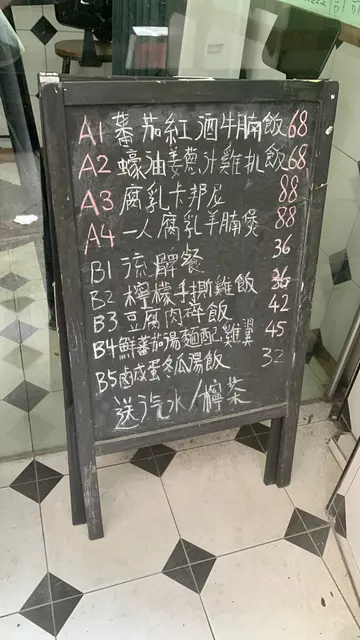 A1 蕃茄紅酒牛腩飯 68
A2 蠔油姜蔥汁雞扒飯 68
A3 腐乳卡邦尼 88
A4 一人腐乳羊腩煲 88
B1 流髀餐 36
B2 檸檬手撕雞飯 36
B3 豆腐肉碎飯 42
B4 鮮蕃茄湯麵配雞翼 45
B5 鹵咸蛋冬瓜湯飯 32
送汽水/檸茶